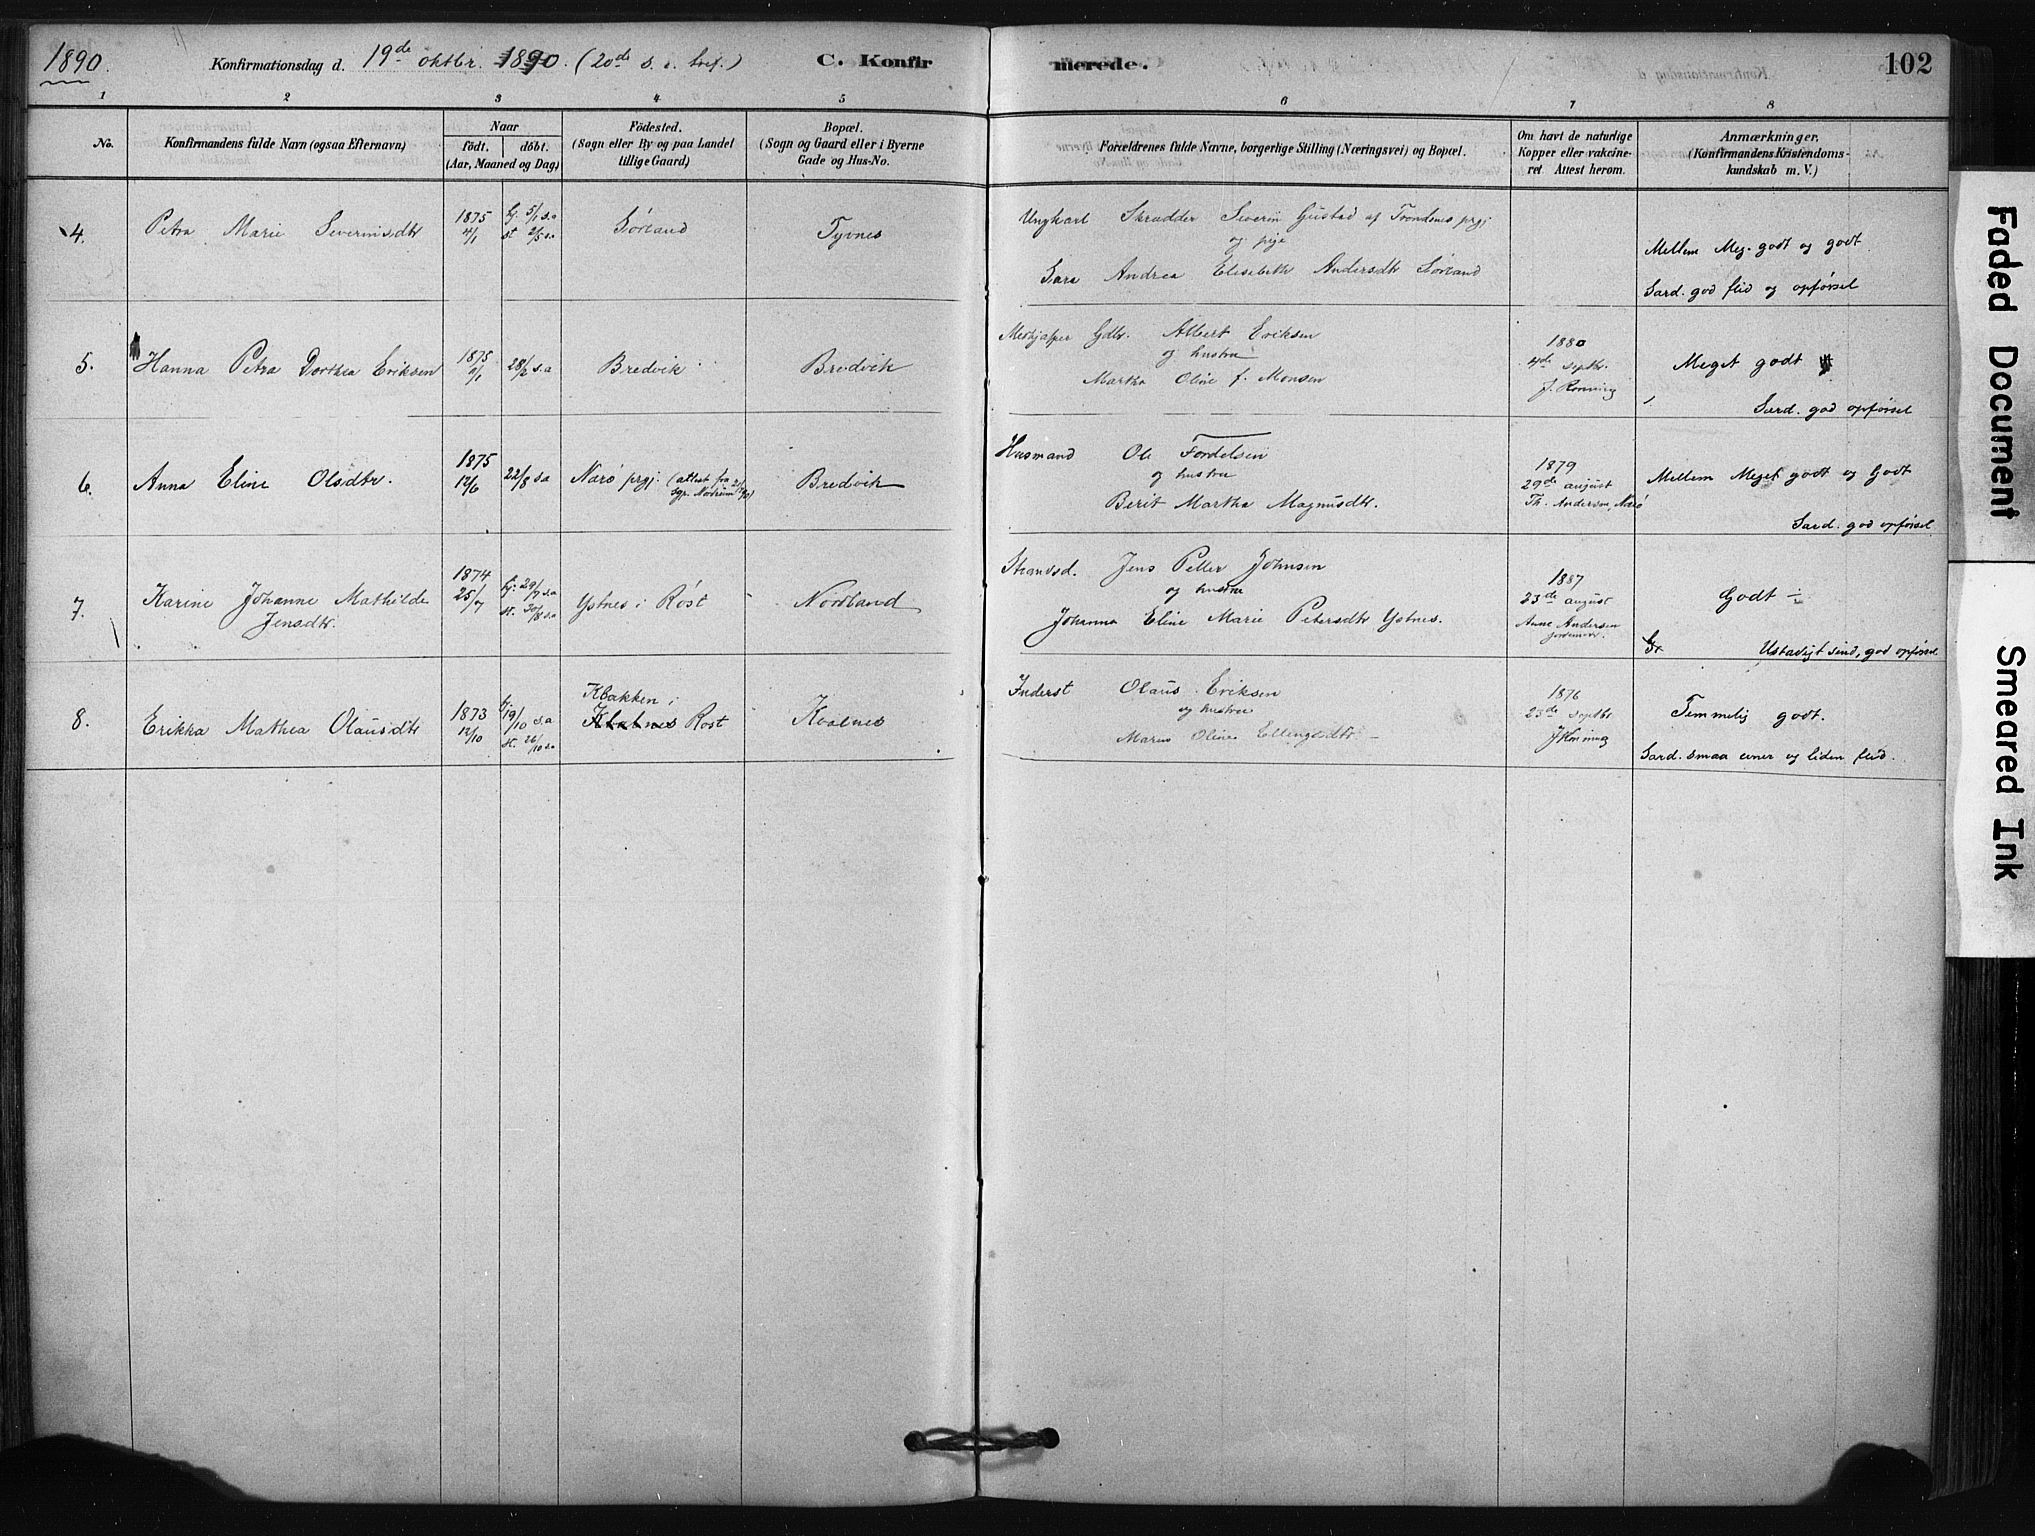 1890.
Konfirmationsdag d. 19de oktbr. 1890. (20de s. e. tref.)
C. Konfirmerede.
102
1 2 3 4 5 6 7 8
No.
Konfirmandens fulde Navn (ogsaa Efternavn)
Naar
födt. döbt.
(Aar, Maaned og Dag)
Födested.
(Sogn eller By og paa Landet
tillige Gaard)
Bopæl.
(Sogn og Gaard eller i Byerne
Gade og Hus-No.
Forældrenes fulde Navne, borgerlige Stilling (Næringsvei) og Bopæl.
Om havt de naturlige
Kopper eller vakcine-
ret Attest herom.
Anmærkninger.
(Konfirmandens Kristendoms-
kundskab m. V.)
4.
Petra Marie Severinsdtr
1875
4/1
hj. 5/1 s.a
st 2/5 s.a
Sørland
Tyvnes
Ungkarl Skrædder Severin Gustad af Trondenes prgj
og pige
Sara Andrea Elisebeth Andersdtr Sørland
Mellem Meg. godt og godt
Særd. god flid og opførsel
5.
Hanna Petra Dorthea Eriksen
1875
9/1
28/2 s.a
Bredvik
Bredvik
Medhjælper Gdbr. Albert Eriksen
og hustru
Martha Oline f. Monsen
1880
4de septbr.
J. Rønning
Meget godt
Særd. god opførsel
6.
Anna Eline Olsdtr.
1875
12/6
22/8 s.a
Nærø prgj. (attest fra
sgpr. Nordrum
Bredvik
Husmand Ole Fordelsen
og hustru
Berit Martha Magnusdtr.
1879
29de august
Th. Andersen, Nærø
Mellem Meget godt og Godt
Særd. god opførsel
7.
Karine Johanne Mathilde
Jensdtr.
1874
25/7
hj. 29/7 s.a
st. 30/8 s.a
Ystnes i Røst
Nordland
Strandsd. Jens Petter Johnsen
og hustru
Johanna Eline Marie Petersdtr Ystnes.
1887
23de august
Anne Andersen
jordemoder.
Godt ÷
Ustadigt sind, god opførsel
8.
Erikka Mathea Olausdtr
1873
12/10
hj 19/10 s.a
st. 26/10 s.a
Kbakken i
Røst
Kvalnes
Inderst Olaus Eriksen
og hustru
Maren Oline Ellingsdtr. –
1876
23de septbr
J Rønning
Temmelig godt.
Særd. smaa evner og liden flid.
Faded Document
Smeared Ink